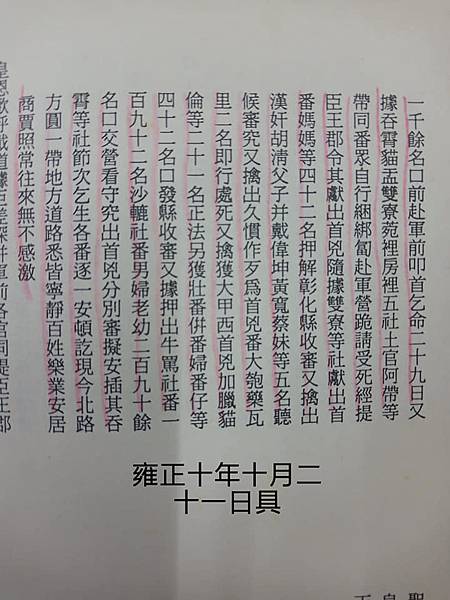 一千餘名口前赴軍前叩首乞命二十九日又
據吞霄貓盂雙寮苑裡房裡五社土官阿帶等
帶同番眾自行綑綁匍赴軍營跪請受死經提
臣王郡令其獻出首兇隨據雙寮等社獻出首
番媽媽等四十二名押解彰化縣收審又擒出
漢奸胡淸父子并戴偉坤黃寬蔡妹等五名聽
候審究又擒出久慣作歹爲首兇番大匏藥瓦
里二名即行處死又擒獲大甲西首兇加臘貓
倫等二十一名正法另獲壯番併番婦番仔等
四十二名口發縣收審又據押出牛罵社番一
百九十二名沙轆社番男婦老幼二百九十餘
名口交營看守究出首兇分別審擬安插其吞
霄等社節次乞生各番逐一安頓訖現今北路
方圓一帶地方道路悉皆寧靜百姓樂業安居
商賈照常往來無不感激
皇恩歡呼載道據臣差探并軍前各官同提臣王郡
雍正十年十月二
十一日具
聖